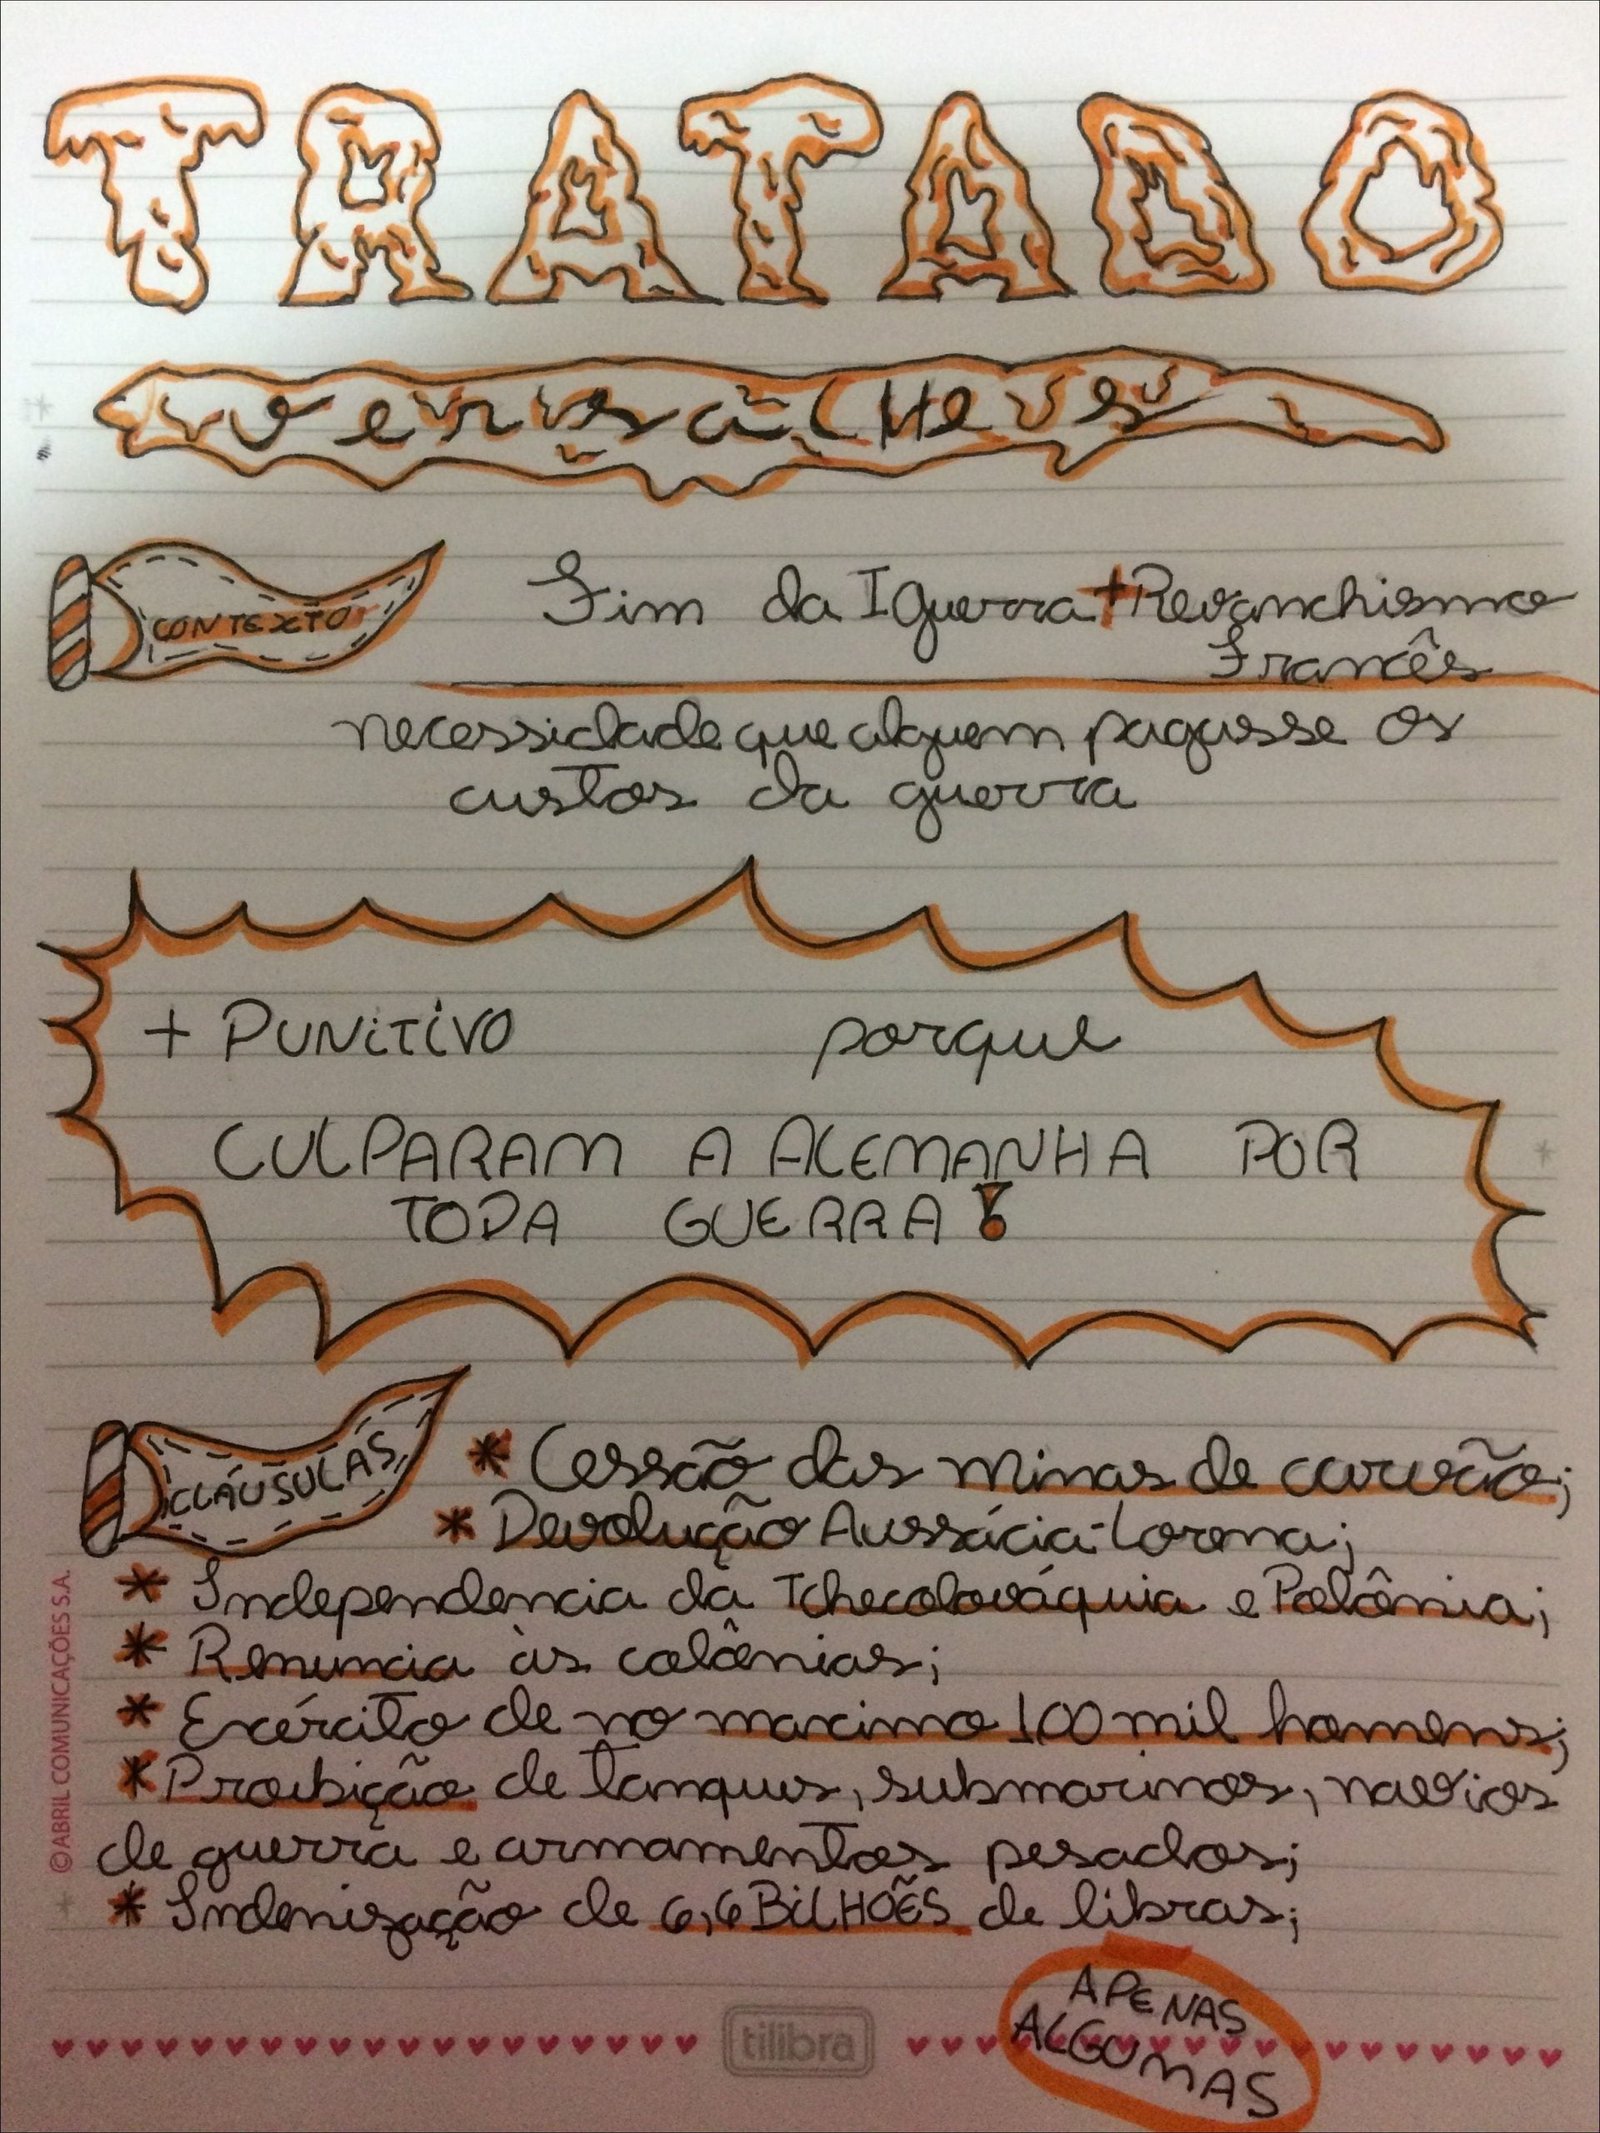 TRATADO
versalHes
CONTEXTO
Fim da I Guerra + Revanchismo
Francês
necessidade que alguem pagasse os
custos da guerra
+ PUNiTiVO porque
CULPARAM A ALEMANHA POR
TODA GUERRA!
CLÁUSULAS
* Cessão das minas de carvão;
* Devolução Aussácia-Lorena;
* Independencia da Tchecolováquia e Polônia;
* Renuncia às colônias;
* Exército de no maximo 100 mil homens;
* Proibição de tanques, submarinos, navios
de guerra e armamentos pesados;
* Indenização de 6,6 BiLHÕES de libras;
APENAS
ALGUMAS
tilibra
©ABRIL COMUNICAÇÕES S.A.